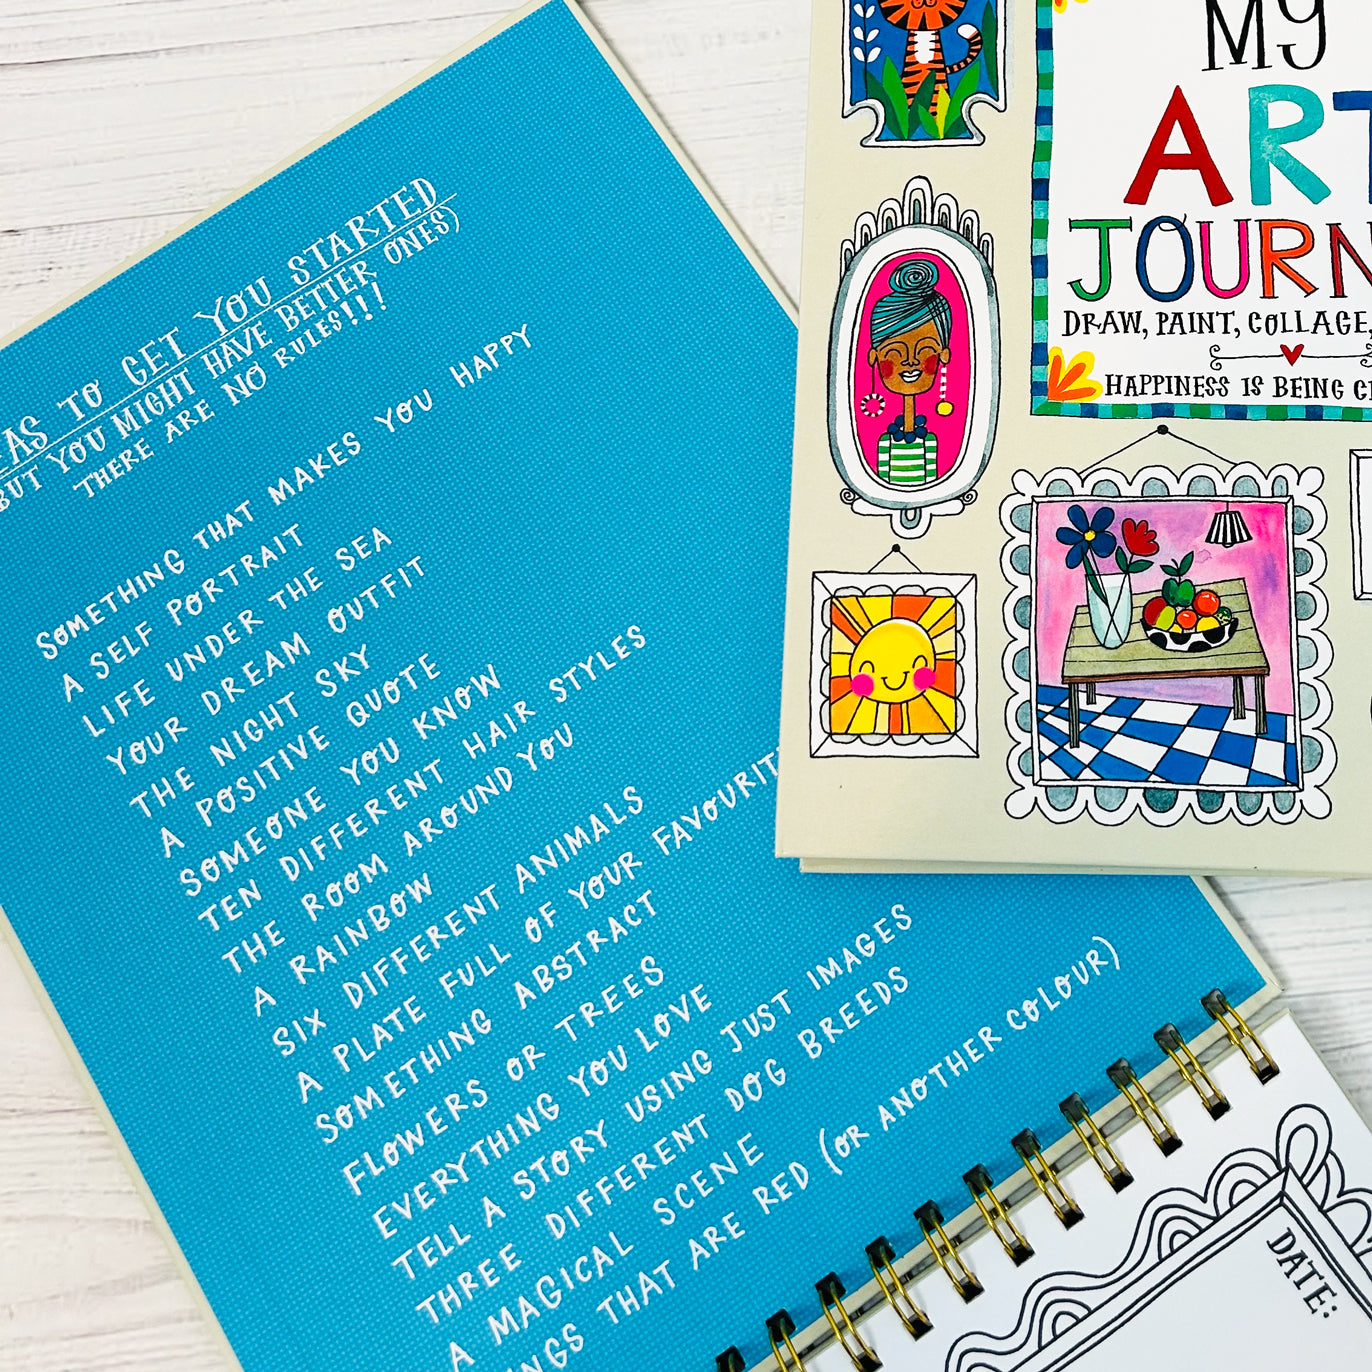 TO GET YOU STARTED
BUT YOU MIGHT HAVE BETTER ONES)
THERE ARE NO RULES!!!
SOMETHING THAT MAKES YOU HAPPY
A SELF PORTRAIT
LIFE UNDER THE SEA
YOUR DREAM OUTFIT
THE NIGHT SKY
A POSITIVE QUOTE
SOMEONE YOU KNOW
TEN DIFFERENT HAIR STYLES
THE ROOM AROUND YOU
A RAINBOW
SIX DIFFERENT ANIMALS
A PLATE FULL OF YOUR
SOMETHING ABSTRACT
FLOWERS OR TREES
EVERYTHING YOU LOVE
TELL A STORY USING JUST IMAGES
THREE DIFFERENT DOG BREEDS
A MAGICAL SCENE
THAT ARE RED (OR ANOTHER COLOUR)
MY
ART
DRAW, PAINT, COLLAGE,
HAPPINESS IS BEING
DATE: